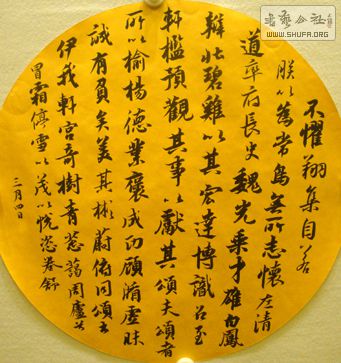 不懼翔集自若
朕以為常鳥無所志懷左清
道率府長史魏光乘才雄白鳳
辯壯碧雞以其宏達博識召至
軒檻預觀其事以獻其頌夫頌者
所以揄揚德業褒成功顧循虛昧
誠有負矣美其彬蔚俯同頌云
伊我軒宮奇樹青蔥藹周廬兮
冒霜停雪以茂以悅恣卷舒
三月四日
書藝公社
WWW.SHUFA.ORG